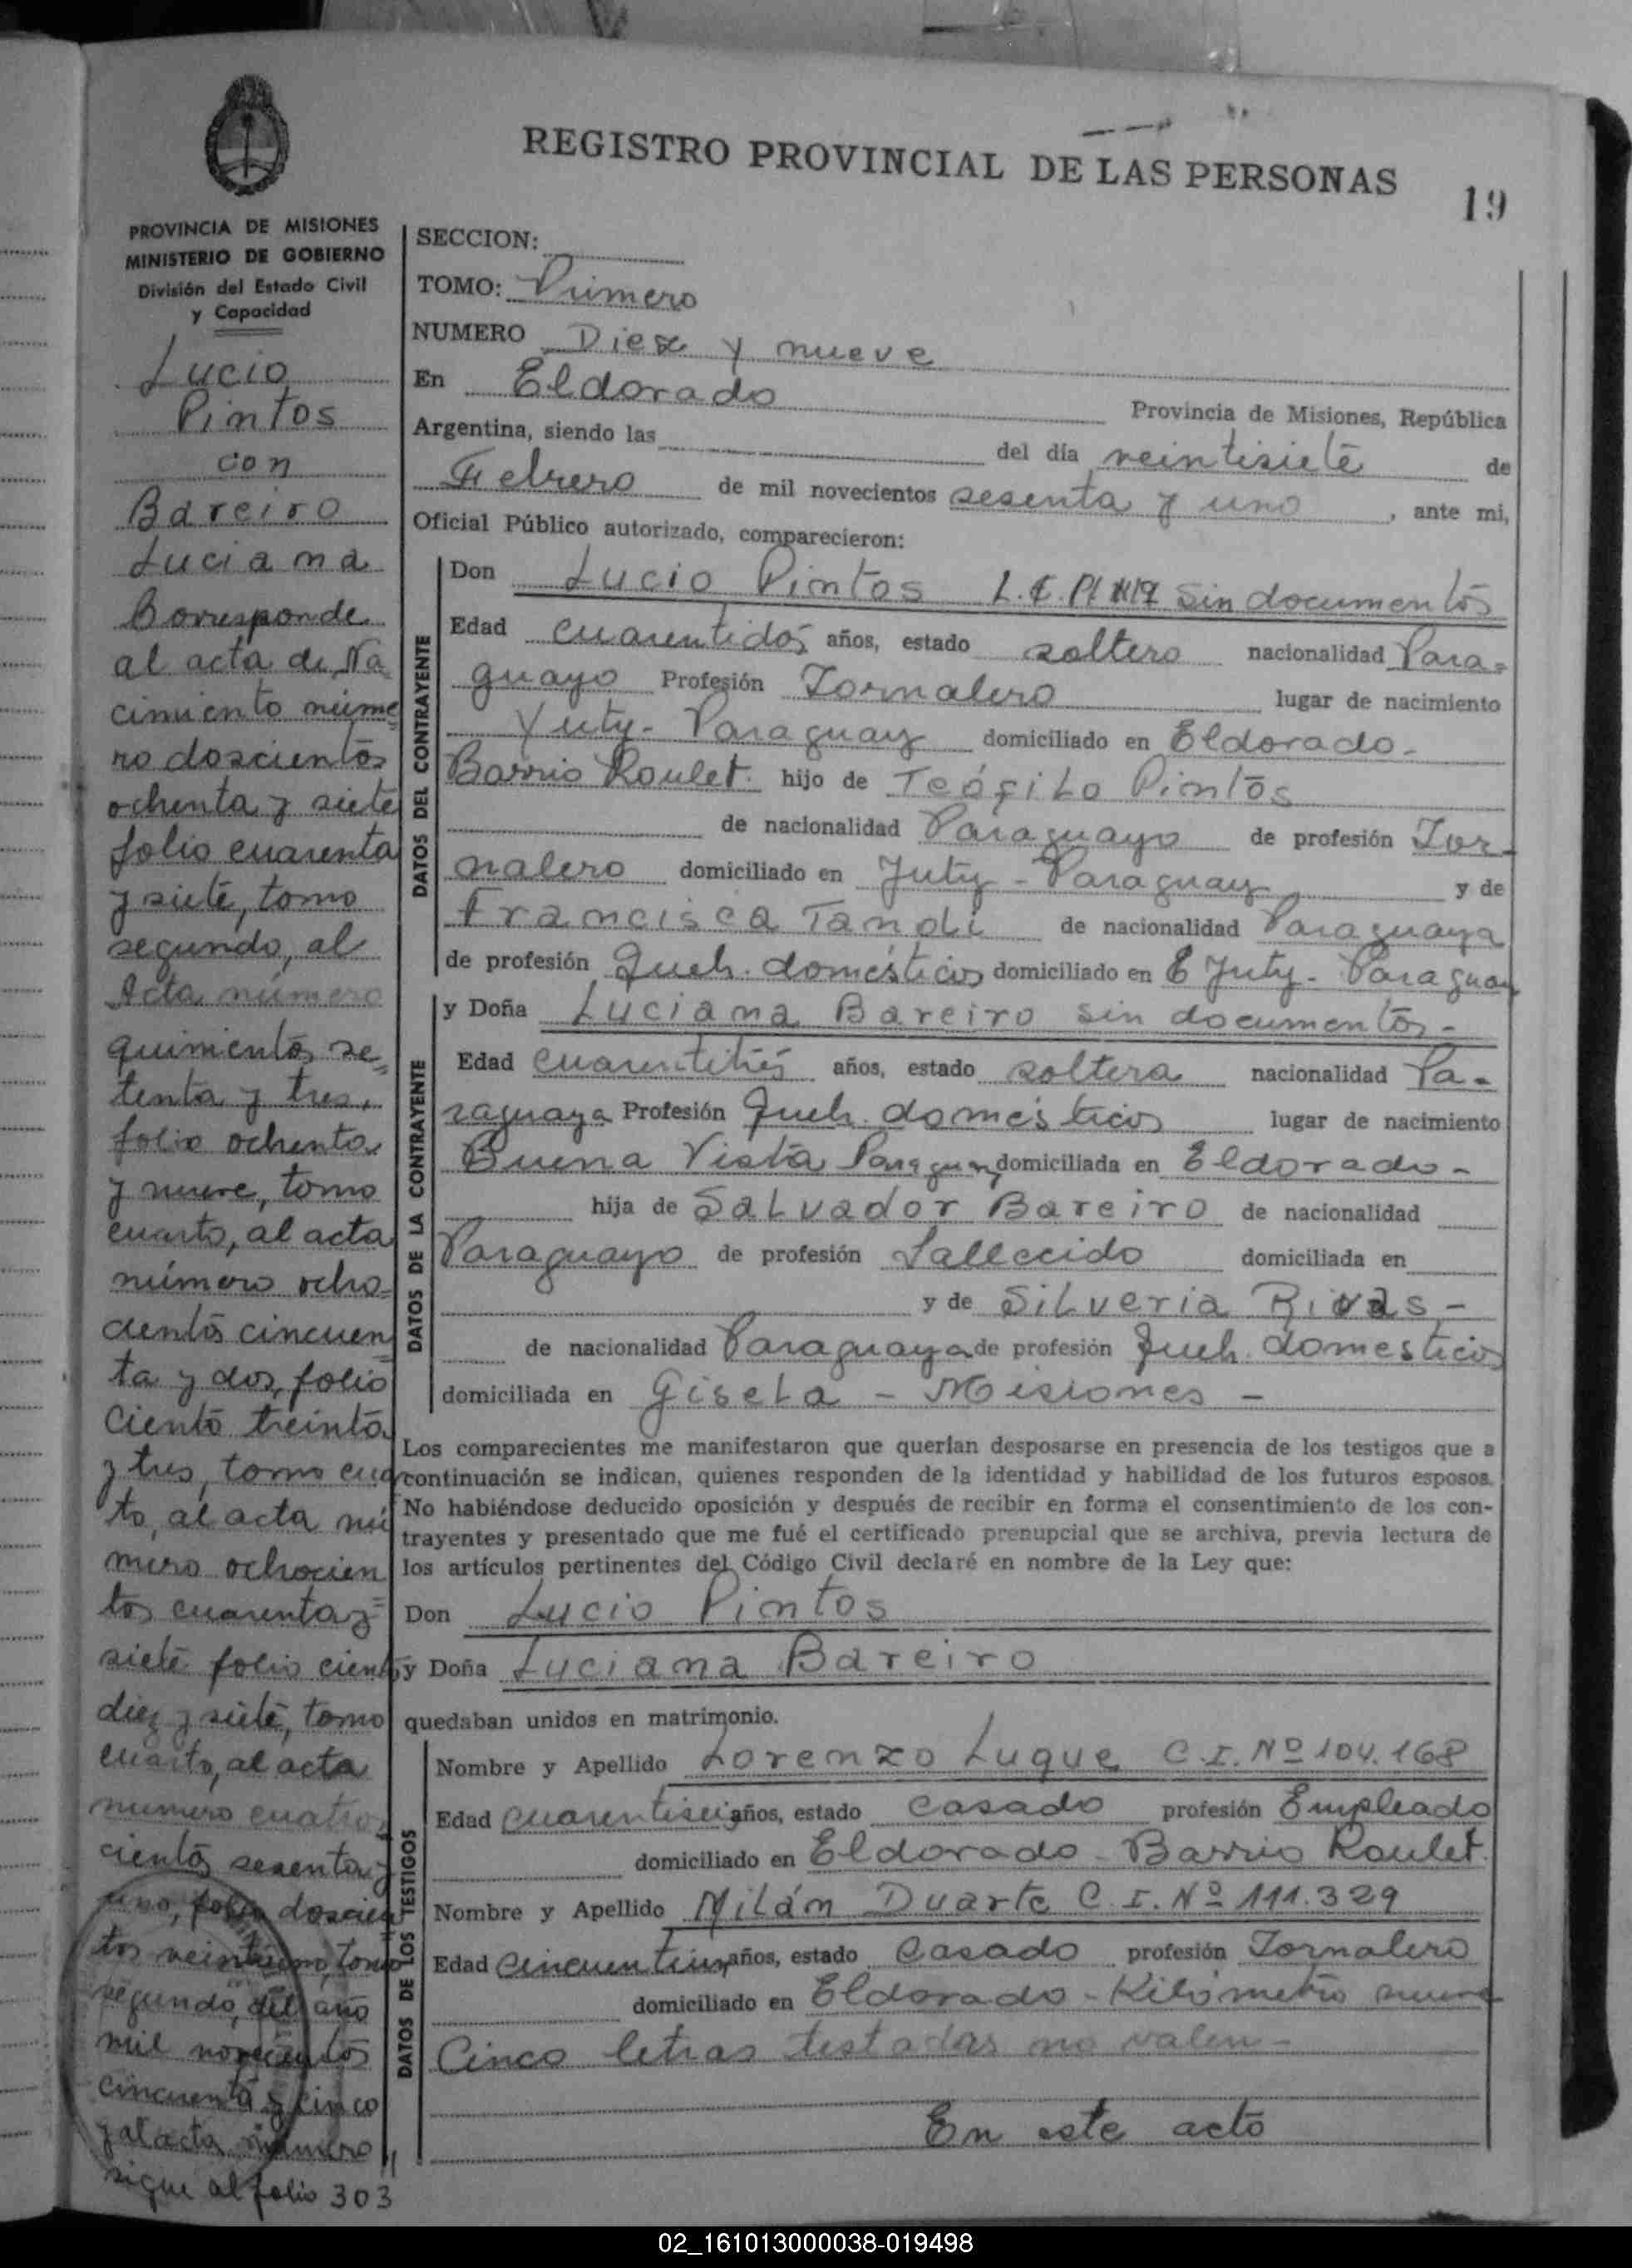 REGISTRO PROVINCIAL DE LAS PERSONAS
19
PROVINCIA DE MISIONES
MINISTERIO DE GOBIERNO
División del Estado Civil
y Capacidad
Lucio
Pintos
con
Bareiro
Luciana
Corresponde
al acta de Na
cimiento núme
ro doscientos
ochenta y siete
folio cuarenta
y siete, tomo
segundo, al
Acta número
quinientos se
tenta y tres,
folio ochenta
y nueve, tomo
cuarto, al acta
número ocho
cientos cincuen
ta y dos, folio
ciento treinta
y tres, tomo cuar
to, al acta nú
mero ochocien
tos cuarenta y
siete folio ciento
diez y siete, tomo
cuarto, al acta
numero cuatro
cientos sesenta y
uno, folio doscien
tos veintiuno, tomo
segundo, del año
mil novecientos
cincuenta y cinco
y al acta número
sigue al folio 303
SECCION:
TOMO: Primero
NUMERO Diez y nueve
En Eldorado Provincia de Misiones, República
Argentina, siendo las del día veintisiete de
Febrero de mil novecientos sesenta y uno, ante mi,
Oficial Público autorizado, comparecieron:
DATOS DEL CONTRAYENTE
Don Lucio Pintos sin documentos
Edad cuarentidós años, estado soltero nacionalidad Para-
guayo Profesión Jornalero lugar de nacimiento
Yuty - Paraguay domiciliado en Eldorado -
Barrio Roulet. hijo de Teófilo Pintos
de nacionalidad Paraguayo de profesión Jor-
nalero domiciliado en Yuty - Paraguay y de
Francisca Tandi de nacionalidad Paraguaya
de profesión Queh. domésticos domiciliado en Yuty - Paraguay
DATOS DE LA CONTRAYENTE
y Doña Luciana Bareiro sin documentos -
Edad cuarentitrés años, estado soltera nacionalidad Pa-
raguaya Profesión Queh. domésticos lugar de nacimiento
Buena Vista Paraguay domiciliada en Eldorado -
hija de Salvador Bareiro de nacionalidad
Paraguayo de profesión Fallecido domiciliada en
y de Silveria Rivas -
de nacionalidad Paraguaya de profesión Queh. domesticos
domiciliada en Gisela - Misiones -
Los comparecientes me manifestaron que querían desposarse en presencia de los testigos que a
continuación se indican, quienes responden de la identidad y habilidad de los futuros esposos.
No habiéndose deducido oposición y después de recibir en forma el consentimiento de los con-
trayentes y presentado que me fué el certificado prenupcial que se archiva, previa lectura de
los artículos pertinentes del Código Civil declaré en nombre de la Ley que:
Don Lucio Pintos
y Doña Luciana Bareiro
quedaban unidos en matrimonio.
DATOS DE LOS TESTIGOS
Nombre y Apellido Lorenzo Luque C.I. Nº 104.168
Edad cuarentiseis años, estado casado profesión Empleado
domiciliado en Eldorado - Barrio Roulet.
Nombre y Apellido Milán Duarte C.I. Nº 111.329
Edad cincuentiun años, estado casado profesión Jornalero
domiciliado en Eldorado - Kilómetro nueve
Cinco letras testadas no valen -
En este acto
02_161013000038-019498